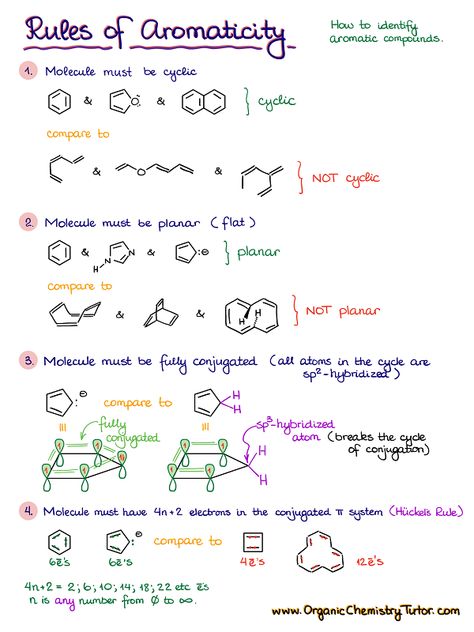 Rules of Aromaticity
How to identify
aromatic compounds.
1. Molecule must be cyclic
& O & } cyclic
compare to
& O & } NOT cyclic
2. Molecule must be planar (flat)
& N N H & ⊖ } planar
compare to
& & H H } NOT planar
3. Molecule must be fully conjugated (all atoms in the cycle are
sp²-hybridized)
⊖ compare to H H
fully
conjugated
sp³-hybridized
atom (breaks the cycle
of conjugation)
H
H
4. Molecule must have 4n+2 electrons in the conjugated π system (Hückel's Rule)
⊖ compare to
6ē's 6ē's 4ē's 12ē's
4n+2 = 2; 6; 10; 14; 18; 22 etc ē's
n is any number from 0 to ∞.
www.OrganicChemistryTutor.com